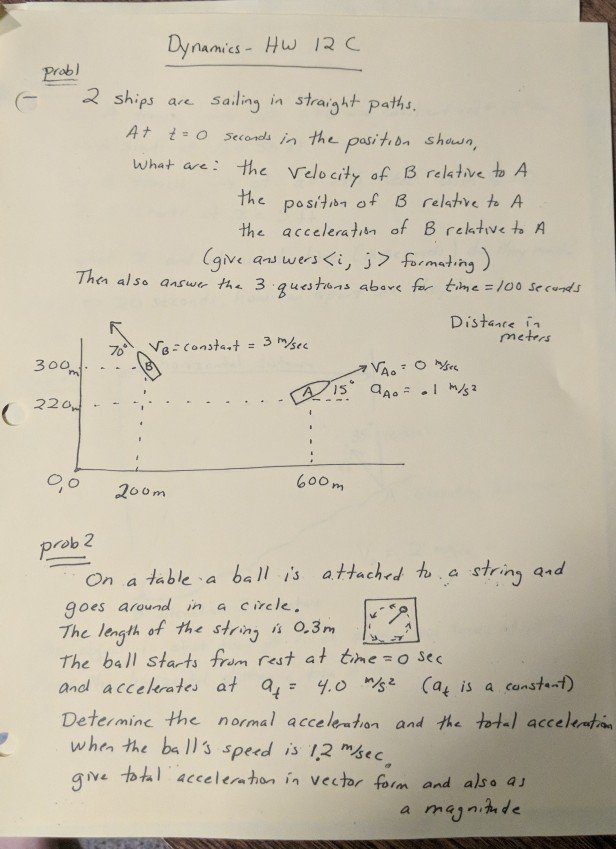 Dynamics - HW 12 C
prob1
2 ships are sailing in straight paths.
At t = 0 seconds in the position shown,
What are: the velocity of B relative to A
the position of B relative to A
the acceleration of B relative to A
(give answers <i, j> formating)
Then also answer the 3 questions above for time = 100 seconds
Distance in meters
70° B VB = constant = 3 m/sec
300m
A 15° VAo = 0 m/sec
aAo = .1 m/s²
220m
0,0
200m
600m
prob 2
On a table a ball is attached to a string and
goes around in a circle.
The length of the string is 0.3m
The ball starts from rest at time = 0 sec
and accelerates at at = 4.0 m/s² (at is a constant)
Determine the normal acceleration and the total acceleration
when the ball's speed is 1.2 m/sec.
give total acceleration in vector form and also as
a magnitude